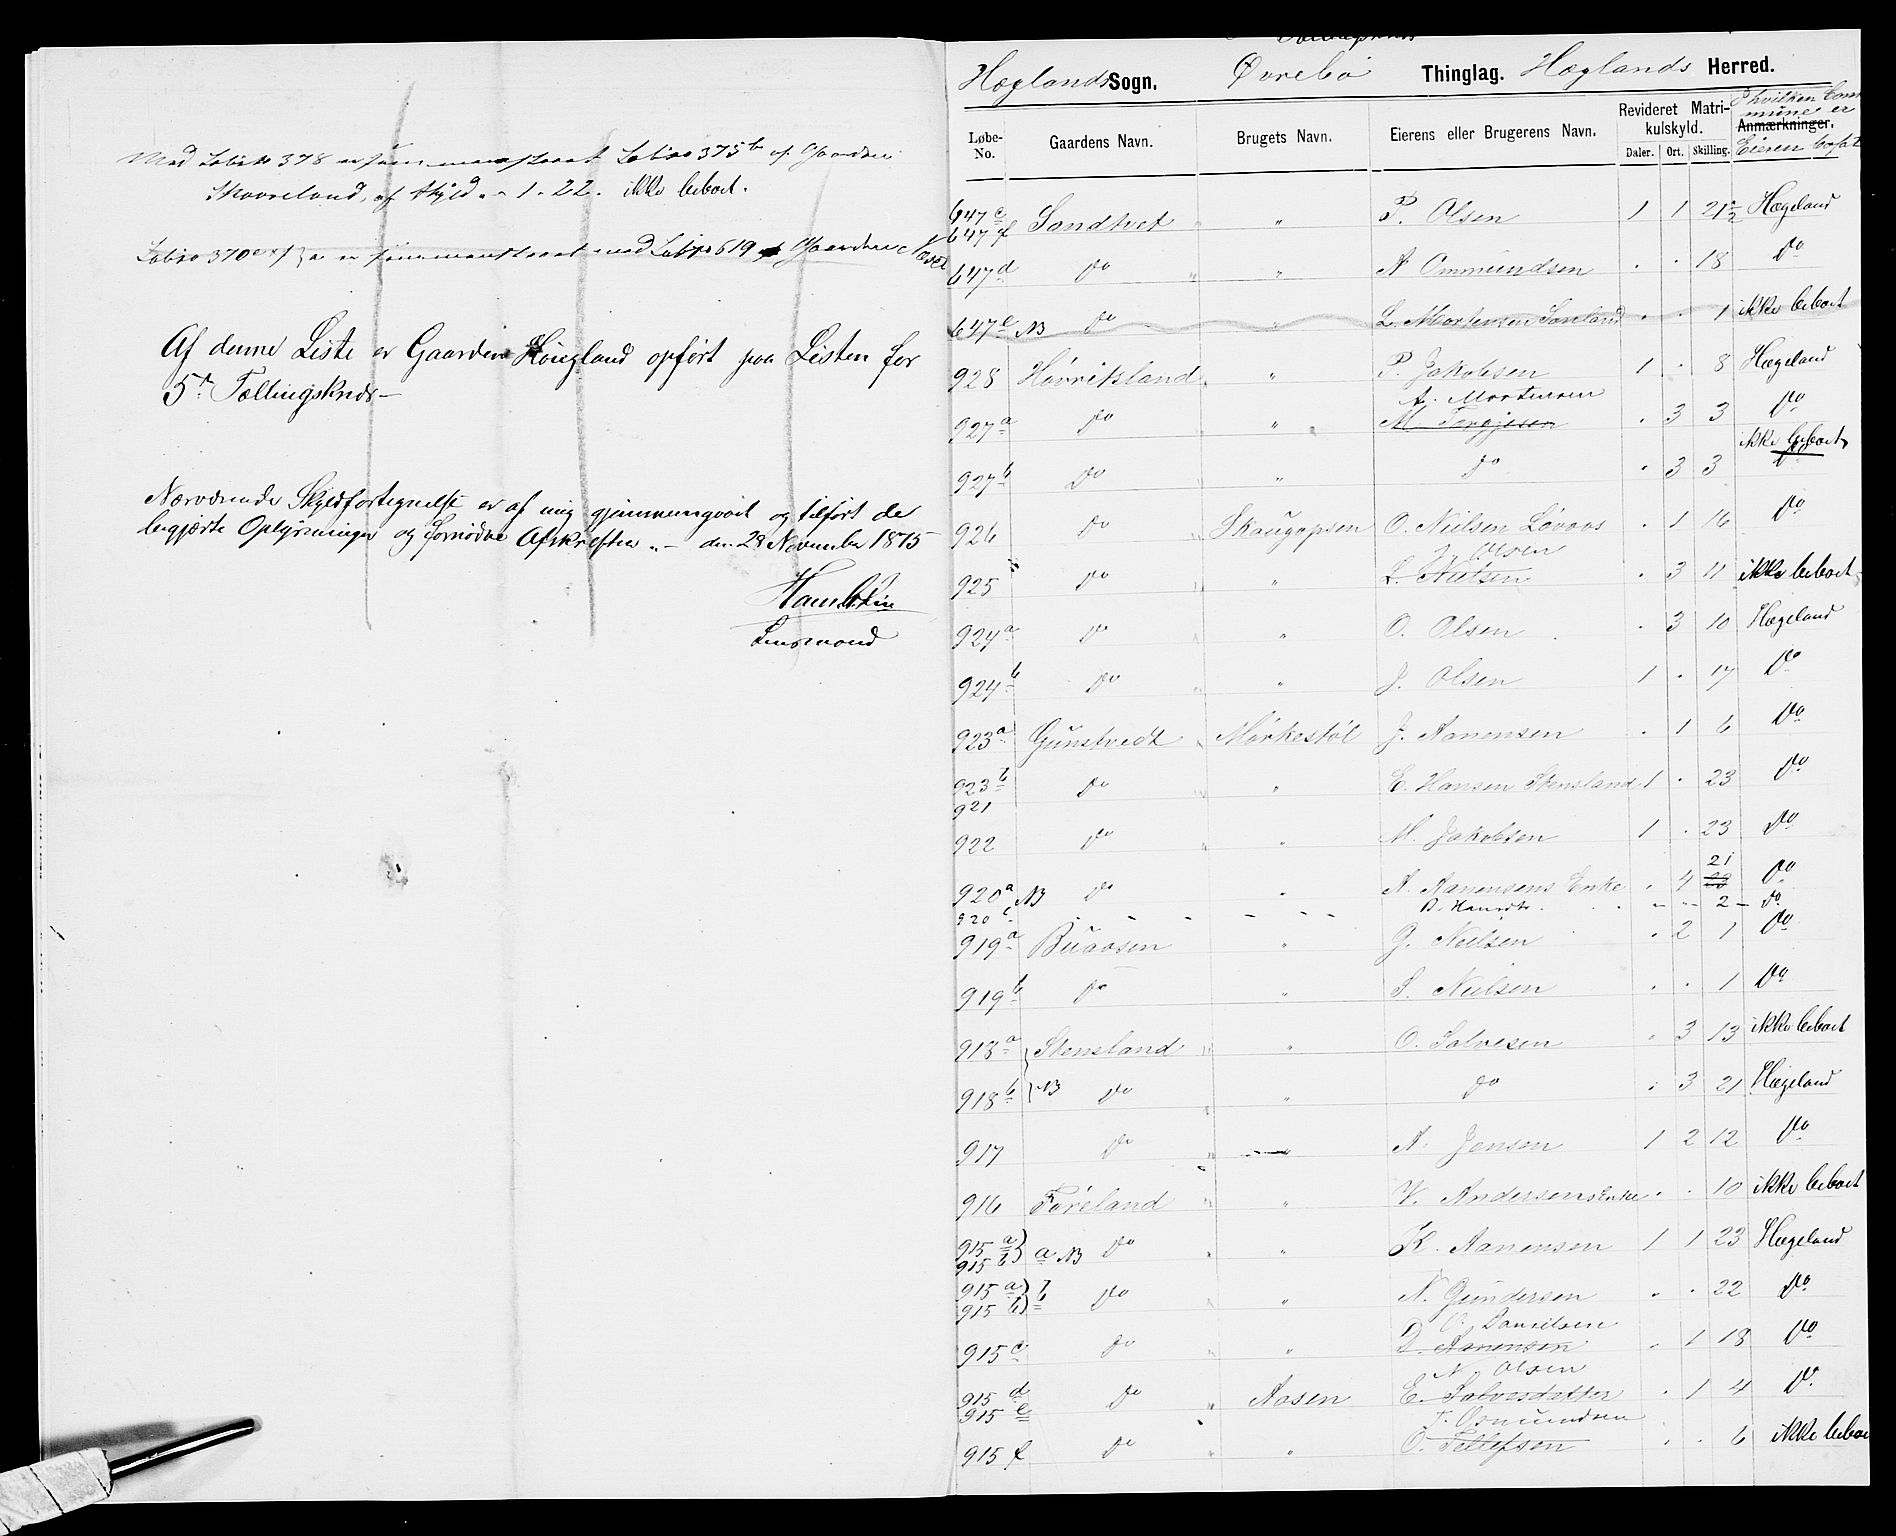 Med Løbno 378 er sammenslaaet Løbno 375 b af Gaarden
Skavreland, af Skyld " - 1 - 22. ikke beboet.
Løbno 370 e x f } a er sammenslaaet med Løbno 619 Gaarden
Af denne Liste er Gaarden Høugland opført paa Listen for
5te Tællingskreds —
Nærværende Skyldfortegnelse er af mig gjennemgaaet og tilført de
begjærte Oplysninger og fornødne Afskrifter. — den 28 November 1875
Lensmand
Hæglands Sogn. Øvrebø Thinglag. Hæglands Herred.
Løbe-No. Gaardens Navn. Brugets Navn. Eierens eller Brugerens Navn. Revideret Matrikulskyld. Daler. Ort. Skilling. Anmærkninger. I hvilken Commune er Eieren bosat
647 c 647 f Sandtvet " " P. Olsen 1 1 21 ½ Hægeland
647 d Do " " A Ommundsen . . 18 Do
647 e NB Do " L. Mortensen Sanland . . 1 ikke beboet
928 Høvriksland " " P. Jakobsen 1 . 8 Hægeland
A. Mortensen
927 a Do " M. Tergjesen . 3 3 Do
ikke beboet
927 b Do " Do . 3 3 Do
926 Do " Skaugapsen O. Nielsen Løvaas . 1 16 Do
J. Olsen
925 Do " L. Nielsen . 3 11 ikke beboet
924 a Do " O. Olsen . 3 10 Hægeland
924 b Do " " J. Olsen 1 . 17 Do
923 a Gunstvedt " Mørkestøl J. Aanensen . 1 6 Do
923 b Do " " E. Hansen Stensland 1 . 23 Do
921
922 Do " " M. Jakobsen 1 . 23 Do
21
920 a NB Do " A. Aanensens Enke . 4 Do
920 c - - - - - - 2 - Do
919 a Buaasen " G. Nielsen . 2 1 Do
919 b Do " S. Nielsen . . 1 Do
918 a Stensland " " O. Salvesen . 3 13 ikke beboet
918 b NB Do " " Do . 3 21 Hægeland
917 Do " " A. Jensen 1 2 12 Do
916 Føreland " " V. Andersens Enke . . 10 ikke beboet
915 a 915 b } a NB Do " " K. Aanensen 1 1 23 Hægeland
915 a 915 b } b Do " " N. Gundersen . . 22 Do
O. Danielsen
915 c Do " " D. Aanensen . 1 18 Do
N. Olsen
915 d 915 e Do " Aasen E. Salvesdatter . 1 4 Do
T. Osmundsen
915 f Do " " O. Tellefsen . . 6 ikke beboet